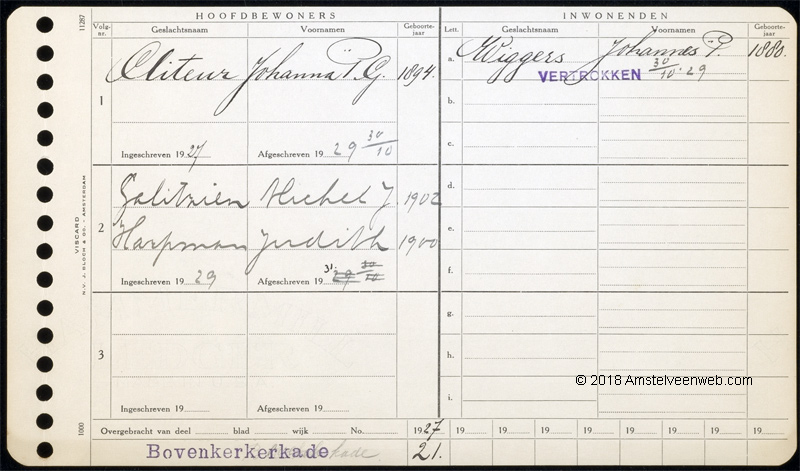 HOOFDBEWONERS
INWONENDEN
Volg-nr. Geslachtsnaam Voornamen Geboorte-jaar
Lett. Geslachtsnaam Voornamen Geboorte-jaar
11287
1 Oliteur Johanna P.G. 1894.
Ingeschreven 1927 Afgeschreven 19 29 30/10
2 Galitzien Michel J. 1902
Harpman Judith 1900
Ingeschreven 19 29 Afgeschreven 19 31. 29 30/10
3
Ingeschreven 19 Afgeschreven 19
a. Wiggers Johannes P. 1880.
VERTROKKEN 30/10 - 29
b.
c.
d.
e.
f.
g.
h.
i.
VISCARD
N.V. J. BLOCH & CO. - AMSTERDAM
1000
© 2018 Amstelveenweb.com
Overgebracht van deel blad wijk No. 1927 19 19 19 19 19 19 19 19
Bovenkerkerkade 21.